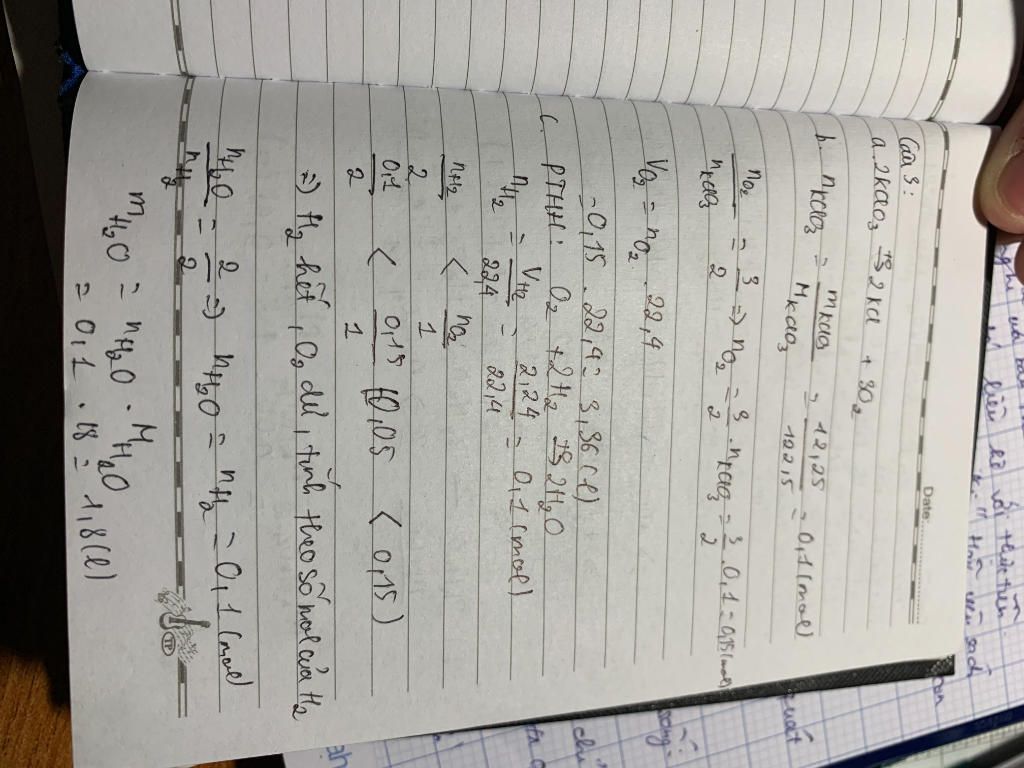 Date:
Câu 3:
a. 2KClO3 → 2KCl + 3O2
b. nKClO3 = mKClO3 / MKClO3 = 12,25 / 122,5 = 0,1 (mol)
nO2 / nKClO3 = 3 / 2 => nO2 = 3 / 2 . nKClO3 = 3 / 2 . 0,1 = 0,15 (mol)
VO2 = nO2 . 22,4
= 0,15 . 22,4 = 3,36 (l)
c. PTHH: O2 + 2H2 → 2H2O
nH2 = VH2 / 22,4 = 2,24 / 22,4 = 0,1 (mol)
nH2 / 2 < nO2 / 1
0,1 / 2 < 0,15 / 1 (0,05 < 0,15)
=> H2 hết, O2 dư, tính theo số mol của H2
nH2O / nH2 = 2 / 2 => nH2O = nH2 = 0,1 (mol)
mH2O = nH2O . MH2O
= 0,1 . 18 = 1,8 (l)